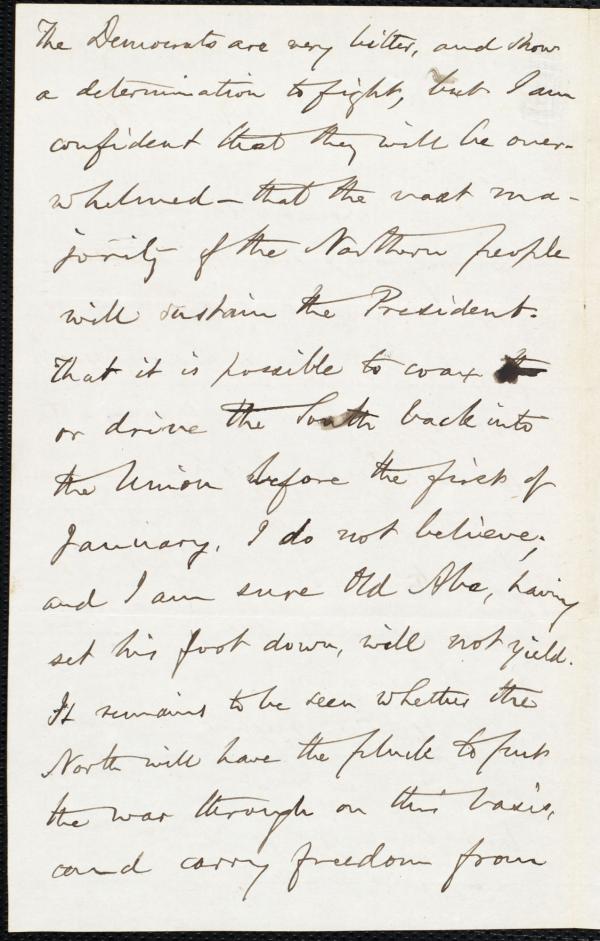 The Democrats are very bitter, and show
a determination to fight, but I am
confident that they will be over-
whelmed - that the vast ma-
jority of the Northern people
will sustain the President.
That it is possible to coax
or drive the South back into
the Union before the first of
January, I do not believe;
and I am sure Old Abe, having
set his foot down, will not yield.
It remains to be seen whether the
North will have the pluck to push
the war through on this basis,
and carry freedom from